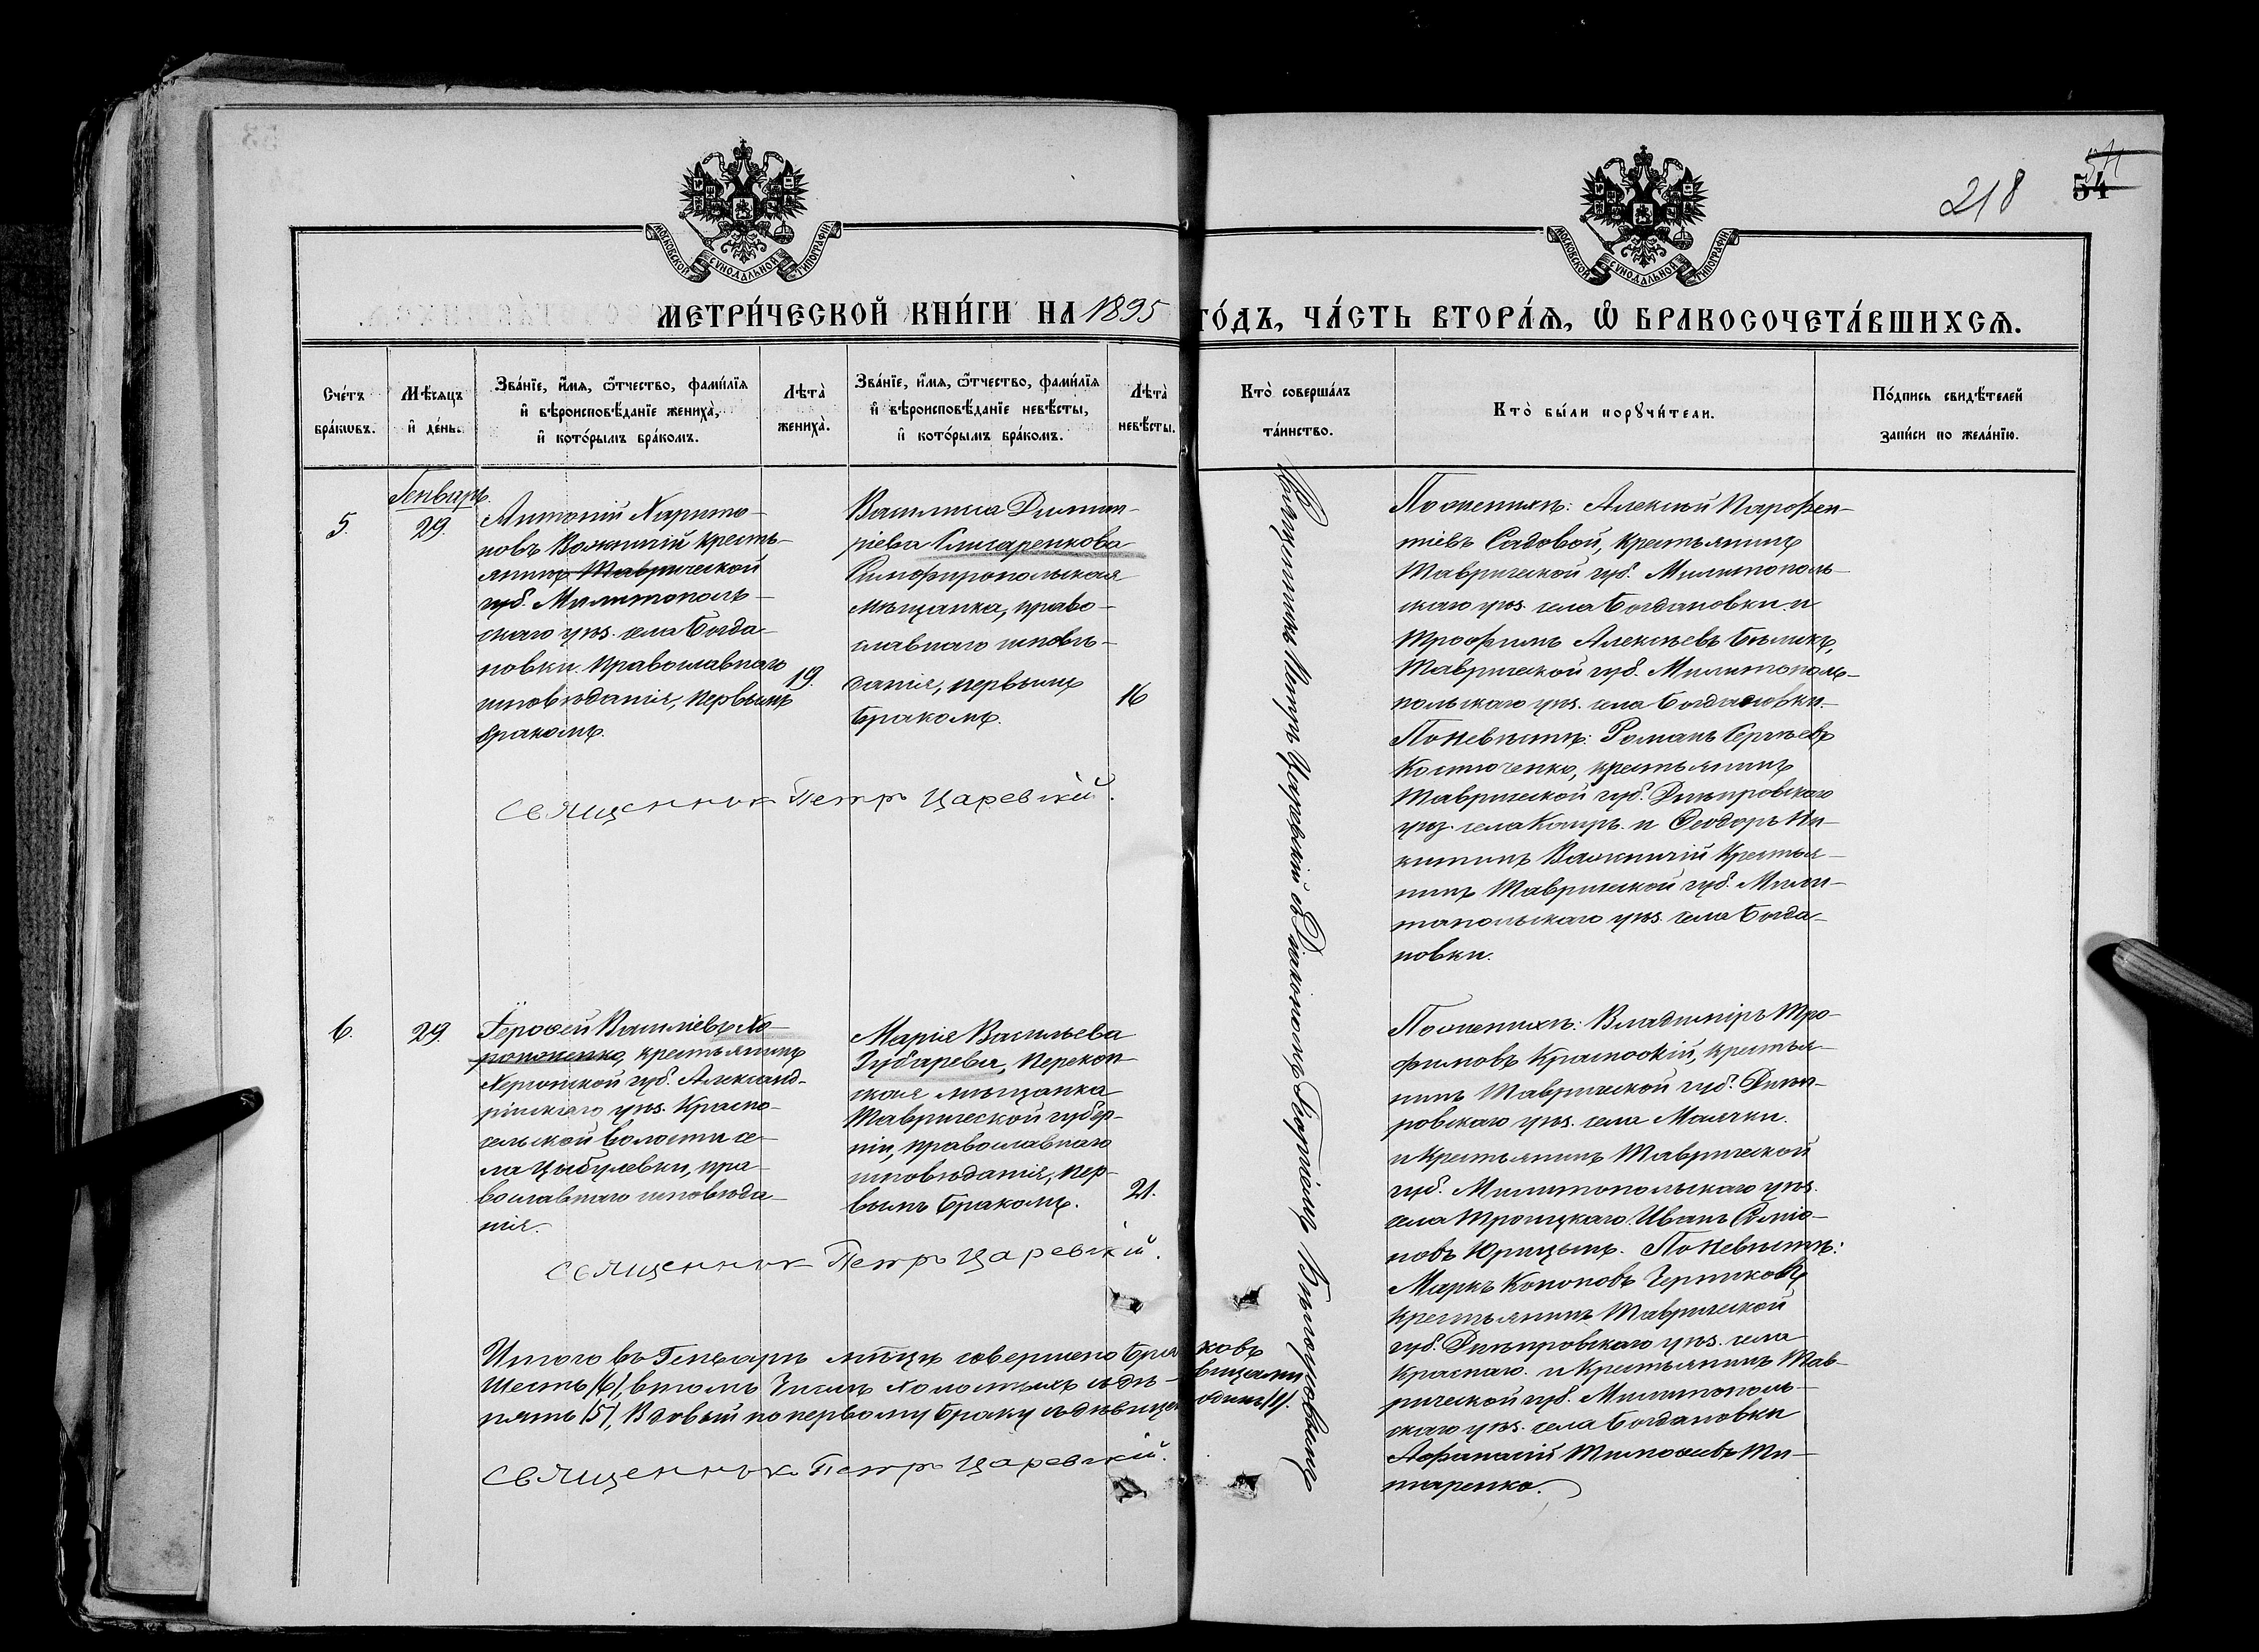 218
54
54
МОСКОВСКОЙ СѴНОДАЛЬНОЙ ТИПОГРАФІИ
МОСКОВСКОЙ СѴНОДАЛЬНОЙ ТИПОГРАФІИ
МЕТРИ́ЧЕСКОЙ КНИ́ГИ НА 1895 ГО́ДЪ, ЧА́СТЬ ВТОРА́Ѧ, Ѡ БРАКОСОЧЕТА́ВШИХСѦ.
Сче́тъ бра́кѡвъ.
Мѣ́сяцъ и де́нь.
Зва́нїе, и҆́мѧ, ѻ҆́тчество, фами́лїѧ
и҆ вѣроисповѣ́данїе жениха̀,
и҆ кото́рымъ бра́комъ.
Лѣта̀ жениха̀.
Зва́нїе, и҆́мѧ, ѻ҆́тчество, фами́лїѧ
и҆ вѣроисповѣ́данїе невѣ́сты,
и҆ кото́рымъ бра́комъ.
Лѣта̀ невѣ́сты.
Кто̀ соверша́лъ
та́инство.
Кто̀ бы́ли порꙋчи́тели.
По́дпись свидѣ́телей
за́писи по жела́нїю.
Генварь
5.
29.
Антоній Харито-
новъ Важничій кресть-
янинъ Таврической
губ. Мелитополь-
скаго уѣз. села Богда-
новки православнаго
исповѣданія, первымъ
бракомъ.
19.
Василиса Димит-
ріева Слисаренкова
Симферопольская
мѣщанка, право-
славнаго исповѣ-
данія, первымъ
бракомъ.
16
Священникъ Петръ Царевскій.
Священникъ Петръ Царевскій съ Діакономъ Георгіемъ
По женихѣ: Алексѣй Парфен-
тіевъ Садовой, крестьянинъ
Таврической губ. Мелитополь-
скаго уѣз. села Богдановки и
Трофимъ Алексѣевъ Бѣликъ,
Таврической губ. Мелитополь-
польскаго уѣз. села Богдановки.
По невѣстѣ: Романъ Сергѣевъ
Костюченко, крестьянинъ
Таврической губ. Днѣпровскаго
уѣз. села Каиръ. и Ѳеодоръ Ни-
китинъ Важничій крестья-
нинъ Таврической губ. Мели-
топольскаго уѣз. села Богда-
новки.
6.
29.
Іероѳей Василіевъ Хо-
ропоненко, крестьянинъ
Херсонской губ. Александ-
рійскаго уѣз. Красно-
сельской волости се-
ла Цыбулевки, пра-
вославнаго исповѣда-
нія.
Марія Васильева
Зубарева, Перекоп-
ская мѣщанка
Таврической губер-
ніи, православнаго
исповѣданія, пер-
вымъ бракомъ.
21.
Священникъ Петръ Царевскій.
По женихѣ: Владиміръ Тро-
фимовъ Красноскій, крестья-
нинъ Таврической губ. Днѣп-
ровскаго уѣз. села Маячки.
и крестьянинъ Таврической
губ. Мелитопольскаго уѣз.
села Троицкаго Иванъ Семіо-
новъ Юрицынъ. По невѣстѣ:
Маркъ Кононовъ Черниковъ
крестьянинъ Таврической
губ. Днѣпровскаго уѣз. села
Краснаго. и крестьянинъ Тав-
рической губ. Мелитополь-
скаго уѣз. села Богдановки
Афанасій Тимоѳеевъ Ти-
таренко.
Итого въ Генварѣ мѣсяцѣ совершено браковъ
шесть (6), въ томъ числѣ холостыхъ съ дѣвицами
пять (5), вдовый по первому браку съ дѣвицей одинъ (1).
Священникъ Петръ Царевскій.